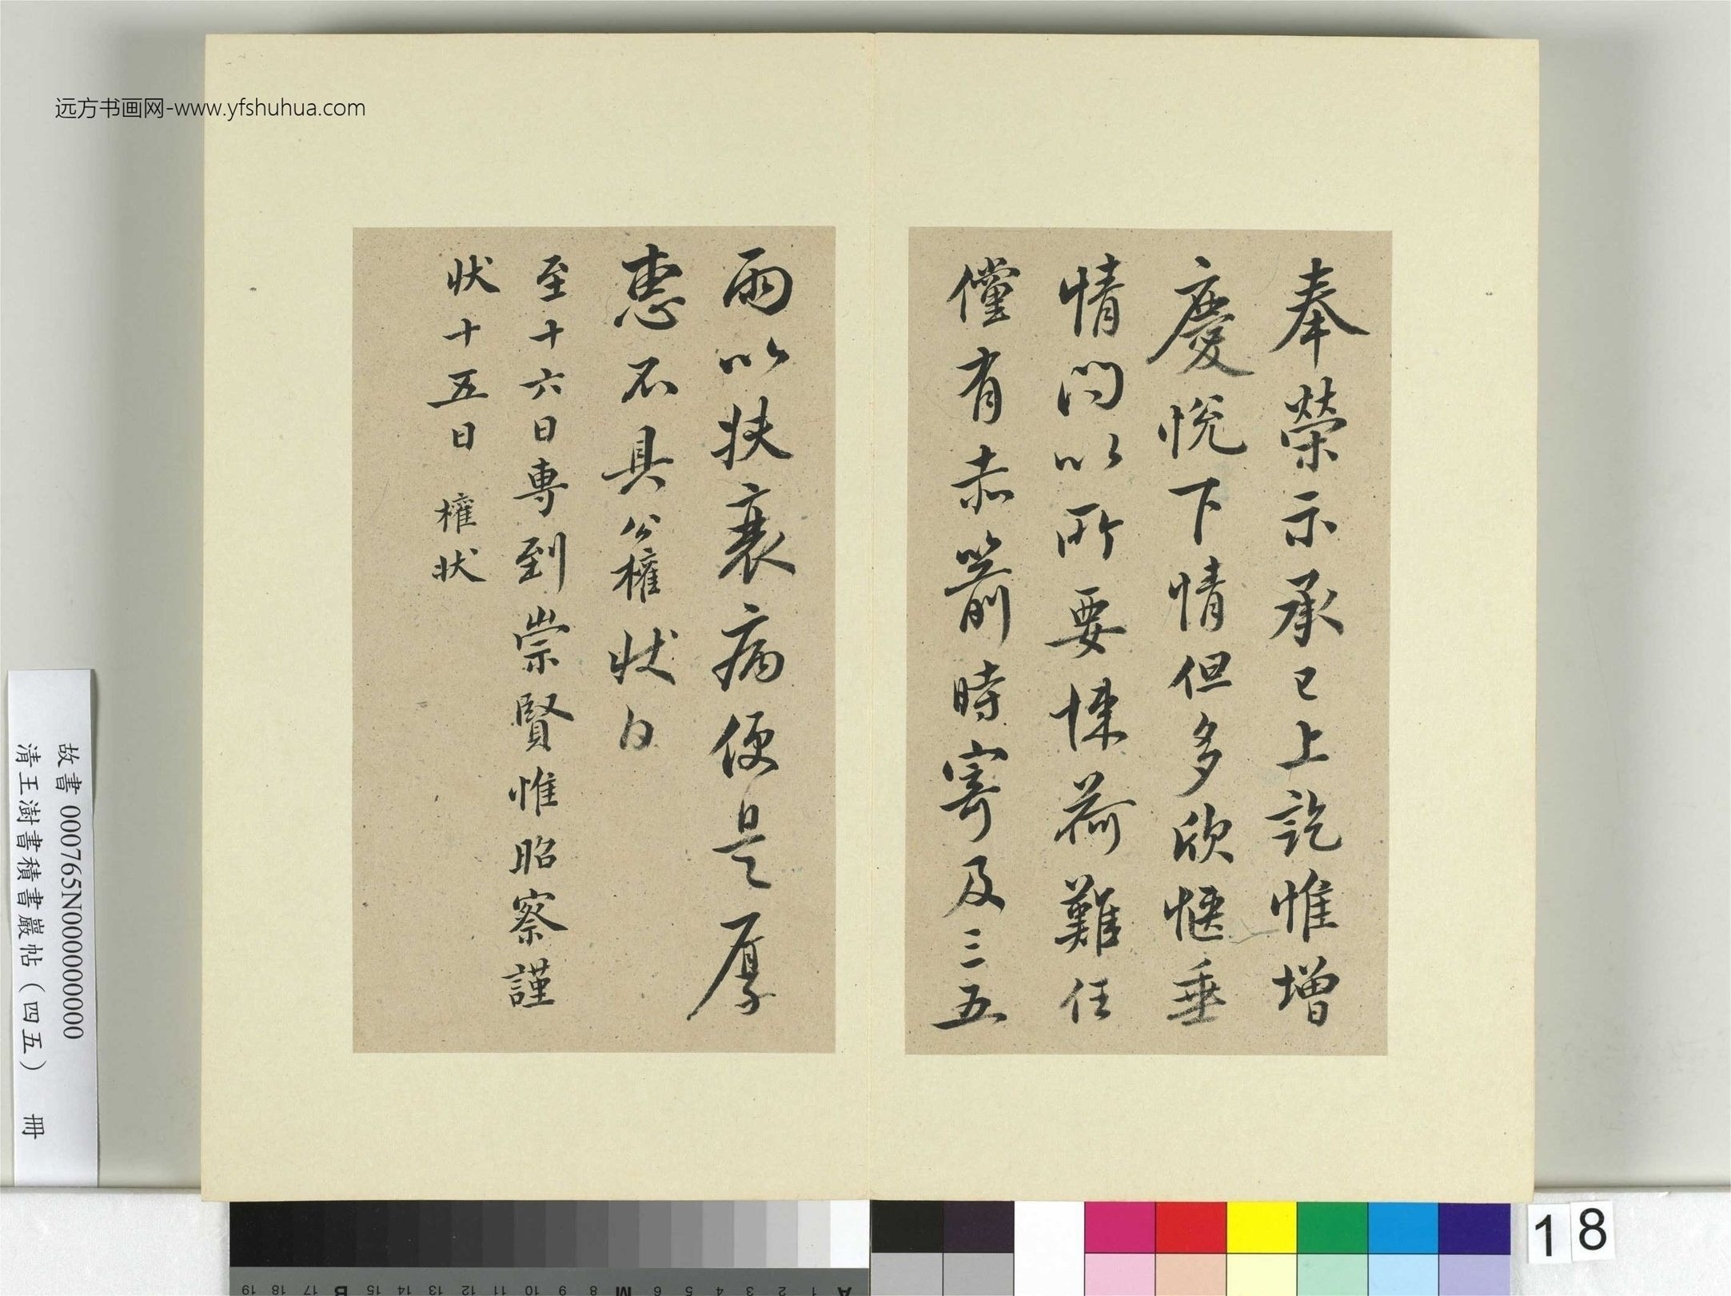 远方书画网-www.yfshuhua.com
奉榮示承已上訖惟增
慶悅下情但多欣愜垂
情問以所要悚荷難任
儻有赤箭時寄及三五
兩以扶衰病便是厚
惠不具公權狀白
至十六日專到崇賢惟昭察謹
狀十五日 權狀
故書 000765N000000000
清王澍書積書巖帖（四五） 冊
18
A 1 2 3 4 5 6 M 8 9 10 11 12 13 14 15 B 17 18 19